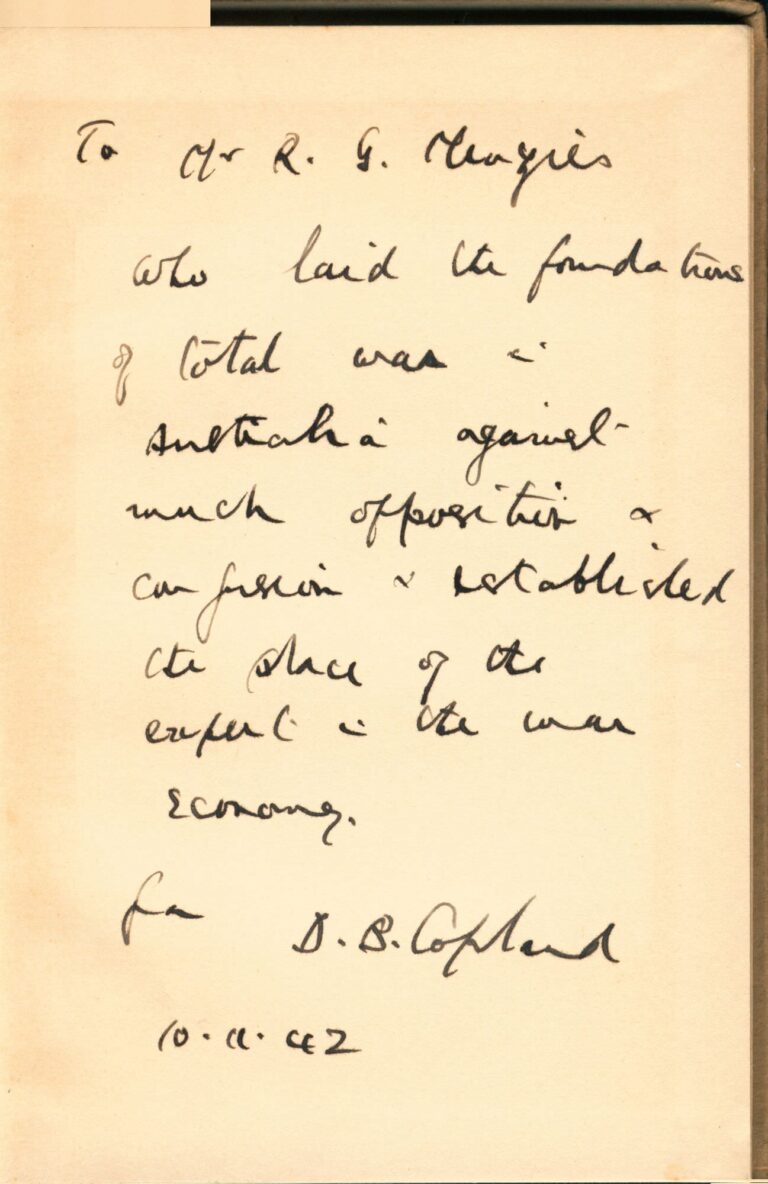 To Mr R. G. Menzies
who laid the foundations
of total war in
Australia against
much opposition &
confusion & established
the place of the
expert in the war
economy.
from D. B. Copland
10.11.42